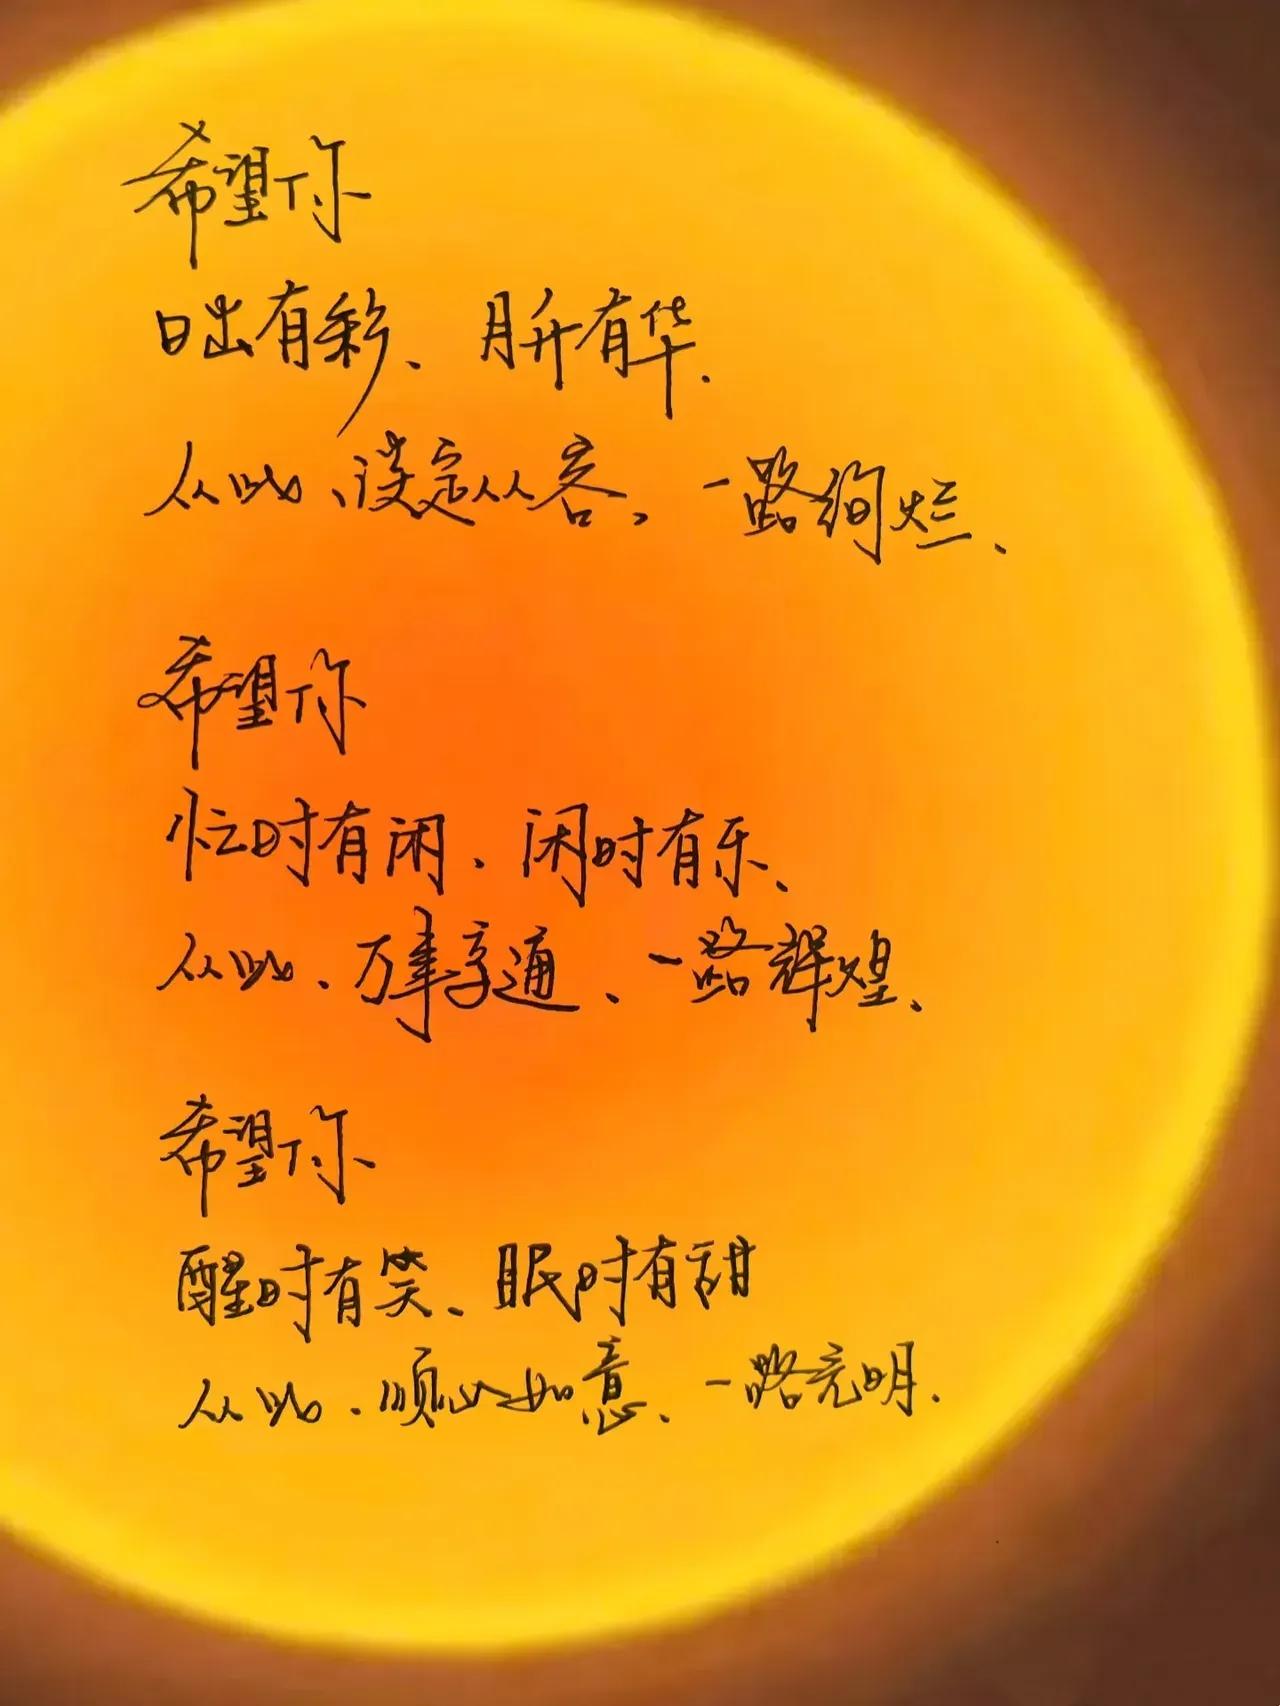 希望你
日出有彩、月升有华.
从此、淡定从容、一路绚烂、
希望你
忙时有闲、闲时有乐、
从此、万事亨通、一路辉煌、
希望你
醒时有笑、眠时有甜
从此、顺心如意、一路光明.